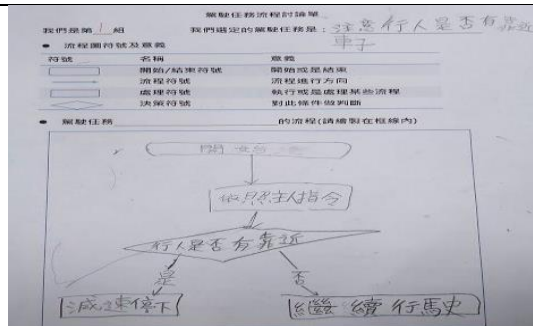 駕駛任務流程討論單
我們是第 1 組 我們選定的駕駛任務是：注意行人是否有靠近
車子
● 流程圖符號及意義
符號 名稱 意義
開始/結束符號 開始或是結束
流程符號 流程進行方向
處理符號 執行或是處理某些流程
決策符號 對此條件做判斷
● 駕駛任務 的流程(請繪製在框線內)
開始
依照主人指令
行人是否有靠近
是 否
減速停下 繼續行馬史